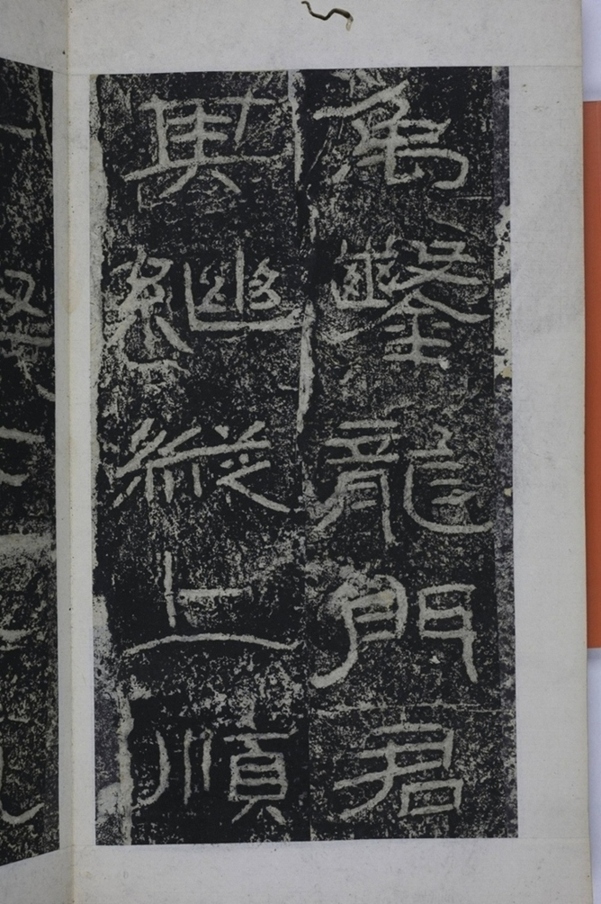 禹鑿龍門君
其繼縱上順